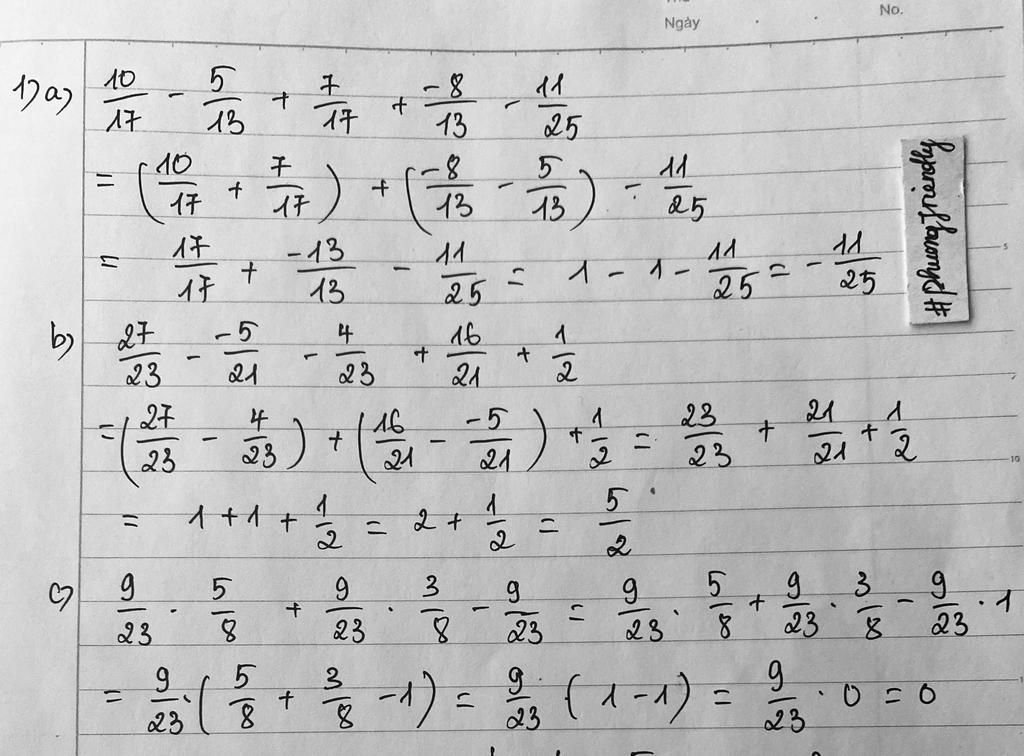 Ngày . . No.
1) a) 10/17 - 5/13 + 7/17 + -8/13 - 11/25
= (10/17 + 7/17) + (-8/13 - 5/13) - 11/25
= 17/17 + -13/13 - 11/25 = 1 - 1 - 11/25 = -11/25
b) 27/23 - -5/21 - 4/23 + 16/21 + 1/2
= (27/23 - 4/23) + (16/21 - -5/21) + 1/2 = 23/23 + 21/21 + 1/2
= 1 + 1 + 1/2 = 2 + 1/2 = 5/2
c) 9/23 . 5/8 + 9/23 . 3/8 - 9/23 = 9/23 . 5/8 + 9/23 . 3/8 - 9/23 . 1
= 9/23 . (5/8 + 3/8 - 1) = 9/23 . (1 - 1) = 9/23 . 0 = 0
5
10